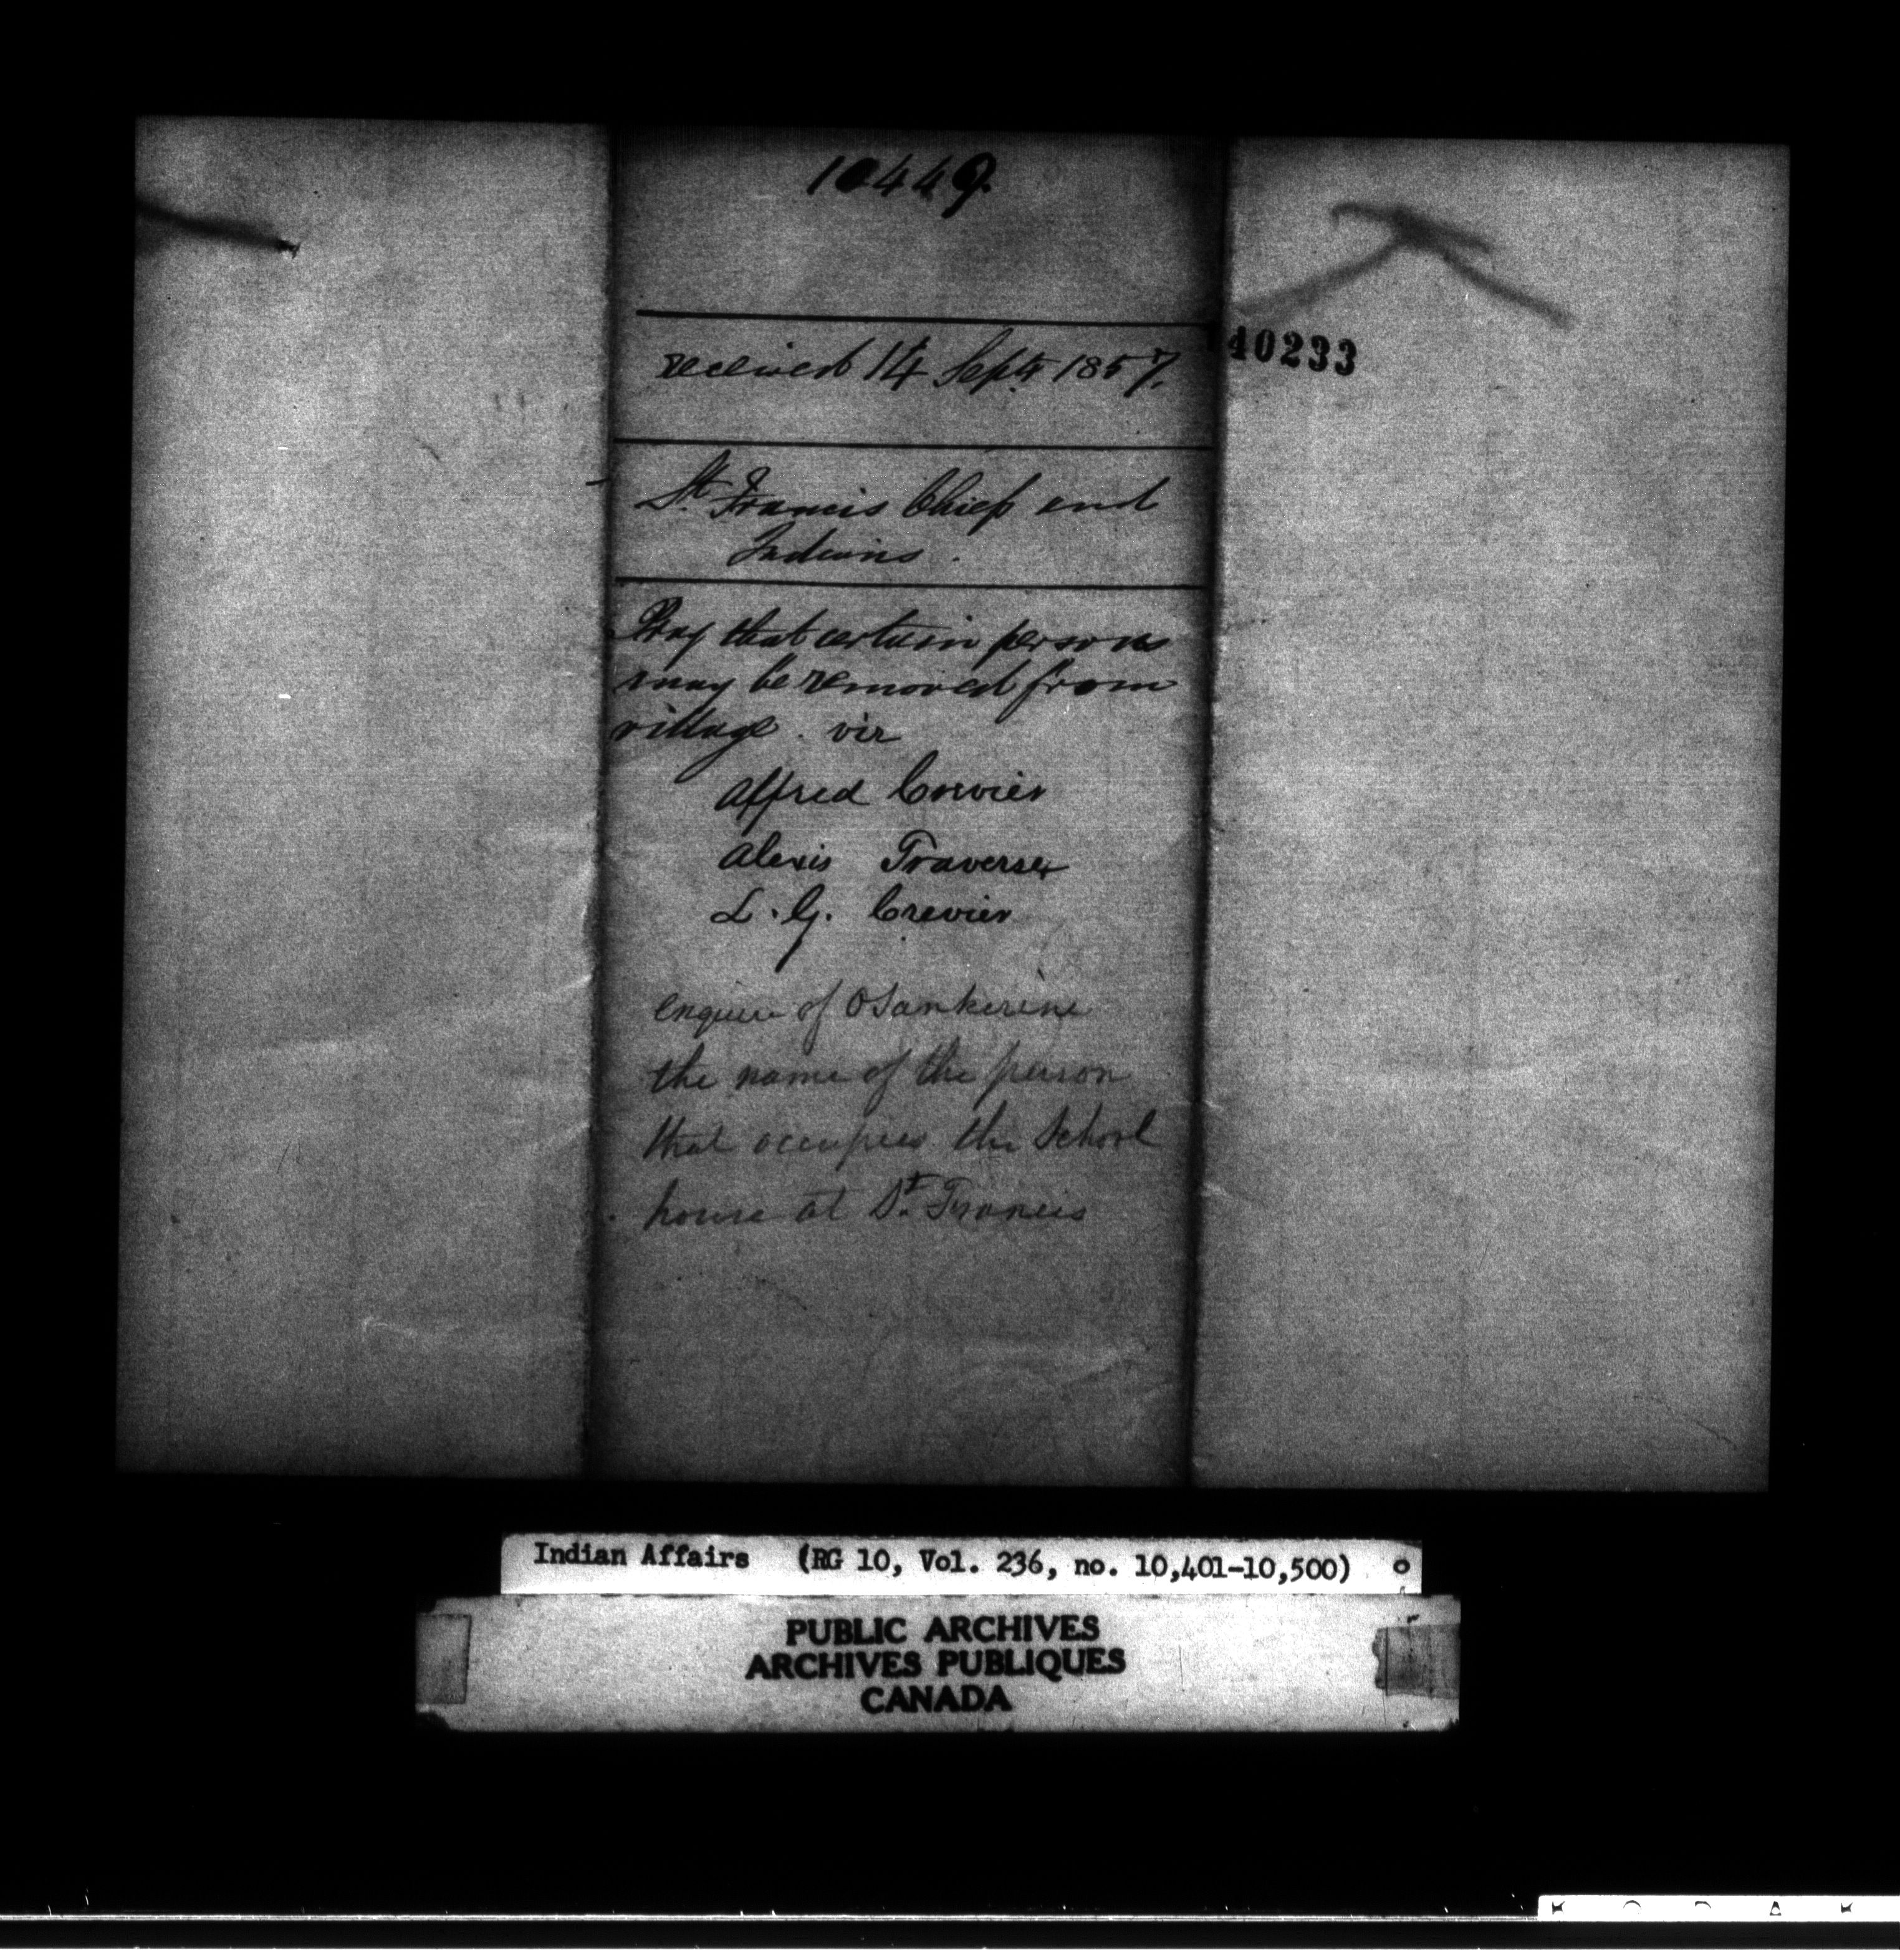 10449.
received 14 Sept 1857.
140233
St. Francis Chiefs and
Indians.
Pray that certain persons
may be removed from
village. viz
Alfred Crevier
Alexis Traversy
L. G. Crevier
enquire of Osankerine
the name of the person
that occupies the School
house at St. Francis
Indian Affairs (RG 10, Vol. 236, no. 10,401-10,500)
PUBLIC ARCHIVES
ARCHIVES PUBLIQUES
CANADA